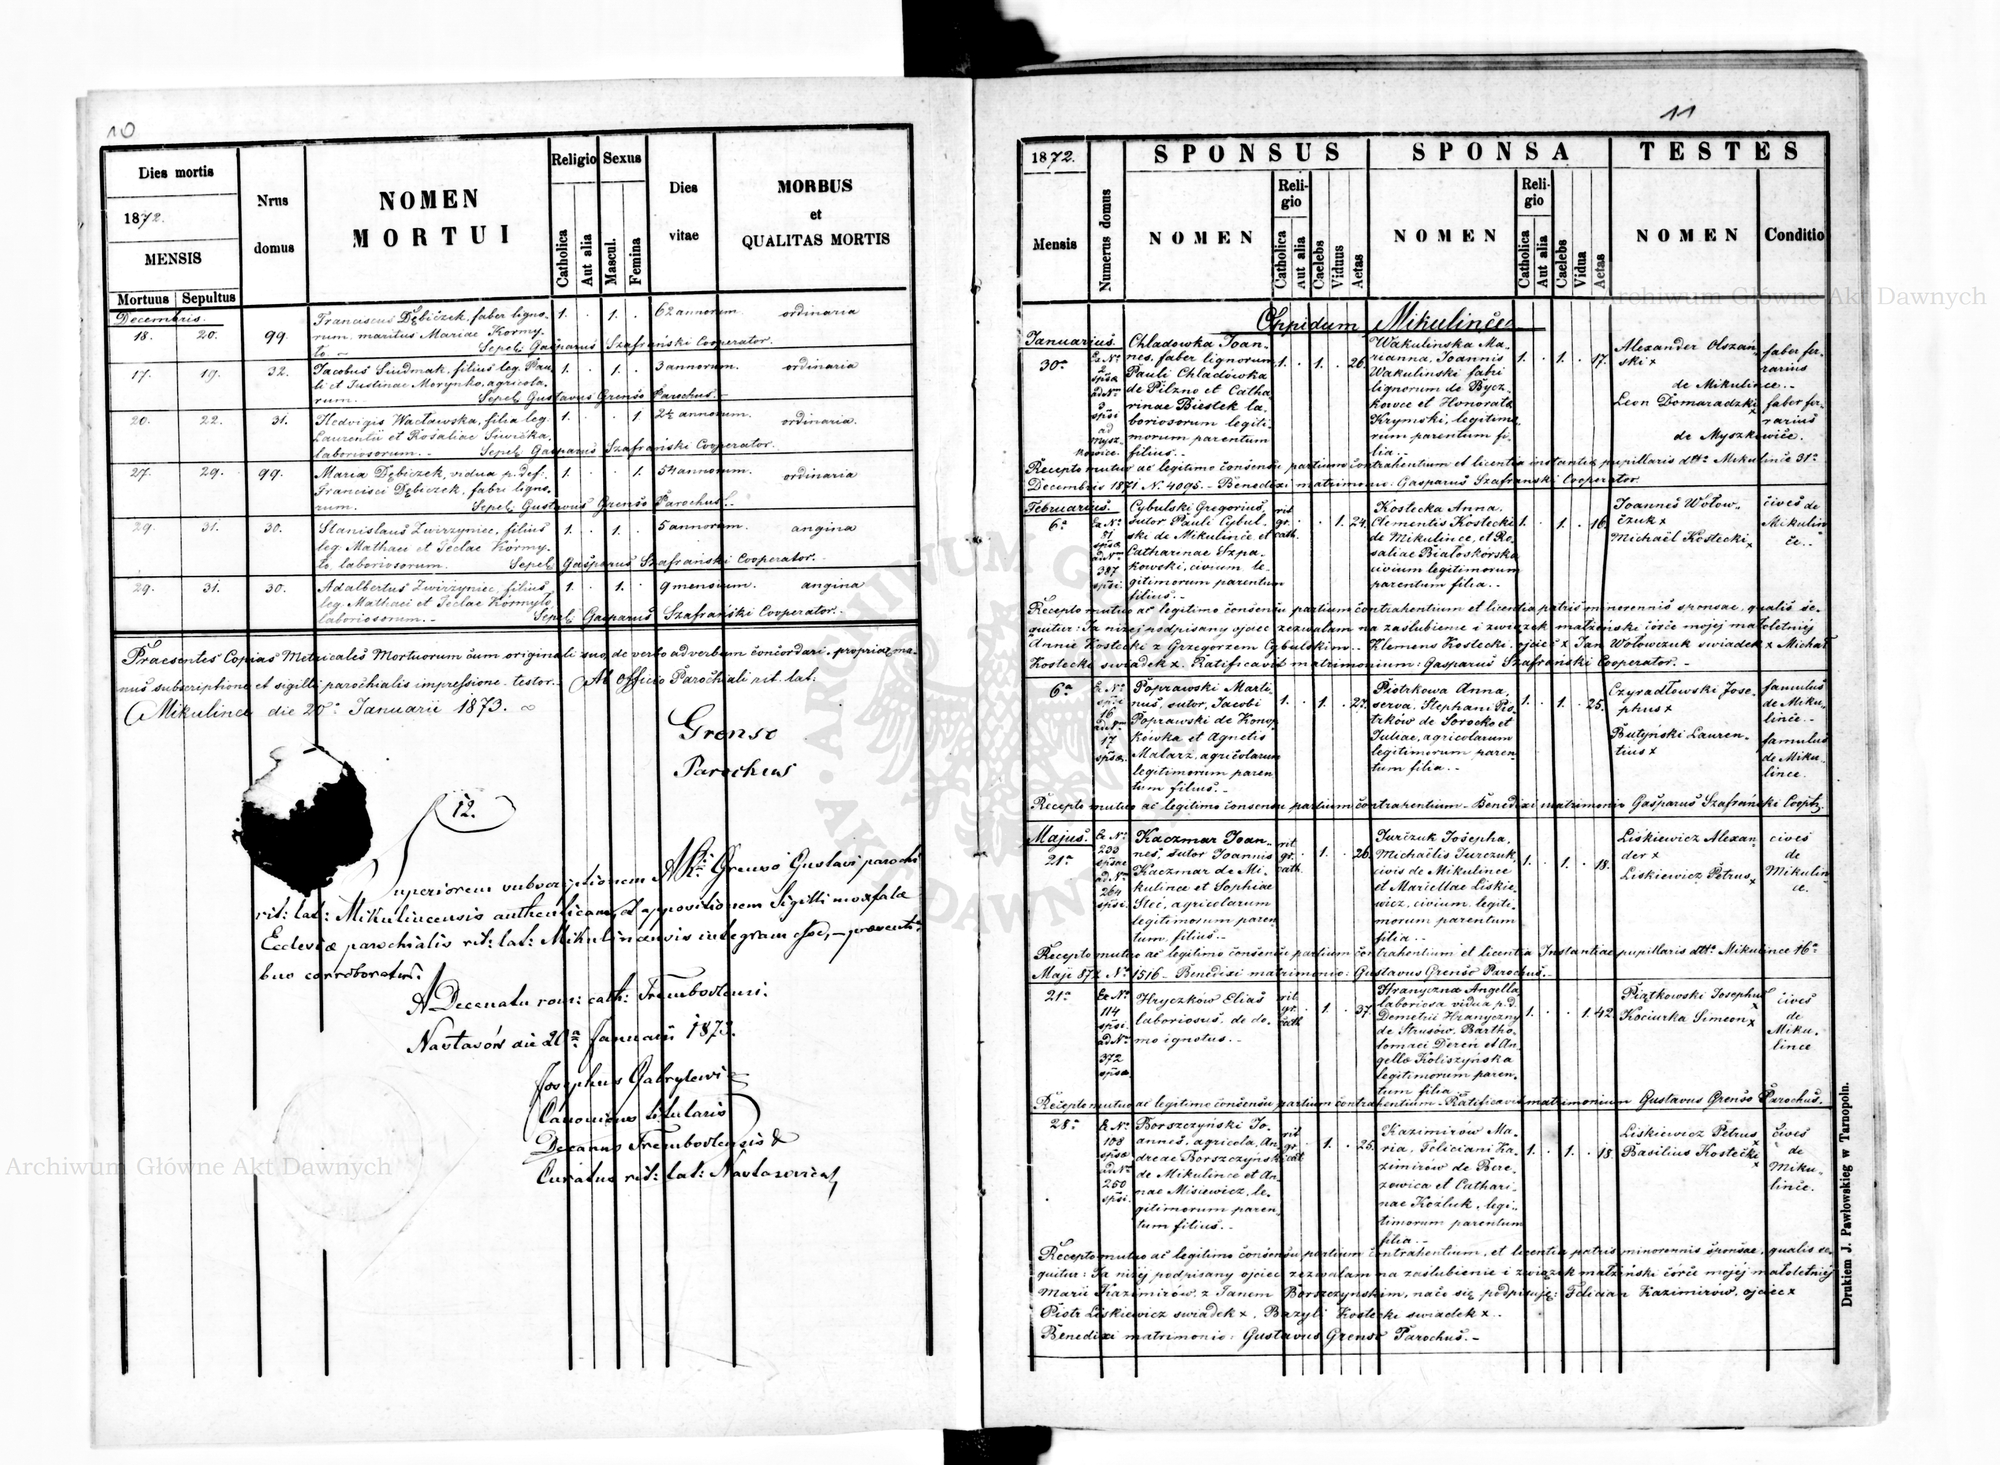 10
Dies mortis
1872.
MENSIS
Mortuus Sepultus
Nrus domus
NOMEN MORTUI
Religio
Catholica
Aut alia
Sexus
Mascul.
Femina
Dies vitae
MORBUS et QUALITAS MORTIS
Decembris.
18. 20. 99. Franciscus Dębiczek, faber ligno- 1. . 1. . 62 annorum. ordinaria
rum, maritus Mariae Kormy-
to – Sepel: Gasparus Szafrański Cooperator.
17. 19. 32. Jacobus Siudmak, filius leg. Pau- 1. . 1. . 3 annorum. ordinaria
li et Justinae Morynko, agricola-
rum. – Sepel: Gustavus Grenso Parochus. –
20. 22. 31. Hedvigis Wacławska, filia leg. 1. . . 1 2½ annorum. ordinaria.
Laurentii et Rosaliae Siwicka,
laboriosorum. – Sepel: Gasparus Szafrański Cooperator.
27. 29. 99. Maria Dębiczek, vidua p. def. 1. . . 1. 54 annorum. ordinaria
Francisci Dębiczek, fabri ligno-
rum. Sepel: Gustavus Grenso Parochus. –
29. 31. 30. Stanislaus Zwirzyniec, filius 1. . 1. . 5 annorum. angina
leg. Mathaei et Teclae Kormy-
to, laboriosorum. Sepel: Gasparus Szafrański Cooperator. –
29. 31. 30. Adalbertus Zwirzyniec, filius 1. . 1. . 9 mensium. angina
leg. Mathaei et Teclae Kormyto
laboriosorum. – Sepel: Gasparus Szafrański Cooperator. –
Praesentes Copias Metricales Mortuorum cum originali suo, de verbo ad verbum concordari, propriae ma-
nus subscriptione et sigilli parochialis impressione testor. – Ab Officio Parochiali rit. lat:
Mikulince die 20a Januarii 1873. –
Grenso
Parochus
12.
Superiorem subscriptionem A Rdi Grensó Gustavi parochi
rit: lat: Mikulincensis authenticam, et appositionem Sigilli
Ecclesiæ parochialis rit: lat: Mikulincensis integram esse, – præsenti-
bus corroboratur.
A Decanatu rom: cath: Trembovlensi.
Nastasów die 20a Januarii 1873.
Josephus Gabrylewicz
Canonicus titularis
Decanus Trembovlensis &
Curatus rit: lat: Nastasoviens.
11
1872.
Mensis
Numerus domus
SPONSUS
NOMEN
Religio
Catholica
Aut alia
Caelebs
Viduus
Aetas
SPONSA
NOMEN
Religio
Catholica
Aut alia
Caelebs
Vidua
Aetas
TESTES
NOMEN
Conditio
Oppidum Mikulince
Januarius.
30a
Ex No 2 spsae ad Num 3 spsi ad Myszkowice.
Chladowka Joan-
nes, faber lignorum
Pauli Chladówka
de Pilzno et Catha-
rinae Biestek la-
boriosorum legiti-
morum parentum
filius. –
1. . 1. . 26.
Wakulinska Ma-
rianna, Joannis
Wakulinski fabri
lignorum de Bycz-
kowce et Honorata
Krymski, legitimo-
rum parentum fi-
lia. –
1. . 1. . 17.
Alexander Olszan-
ski × faber fer-
rarius
de Mikulince. –
Leon Domaradzki × faber fer-
rarius
de Myszkowice.
Recepto mutuo ac legitimo consensu partium contrahentium et licentia instantiae pupillaris dtto Mikulince 31a
Decembris 1871 N. 4095. – Benedixi matrimonio: Gasparus Szafrański Cooperator
Februarius.
6a
Ex No 51 spsae ad Num 387 spsi.
Cybulski Gregorius,
sutor Pauli Cybul-
ski de Mikulince et
Catharinae Szpa-
kowski, civium le-
gitimorum parentum
filius. –
rit. gr. cath. . . 1. 24.
Kostecka Anna,
Clementis Kostecki
de Mikulince, et Ro-
saliae Białoskórska
civium legitimorum
parentum filia. –
1. . 1. . 16.
Joannes Wołow-
czuk ×
Michaël Kostecki ×
cives de
Mikulin-
ce. .
Recepto mutuo ac legitimo consensu partium contrahentium et licentia patris minorennis sponsae, qualis se-
quitur: Ja niżej podpisany ojciec zezwalam na zaślubienie i związek małżeński córce mojej małoletniej
Annie Kostecki z Grzegorzem Cybulskim. – Klemens Kostecki, ojciec × Jan Wołowczuk swiadek × Michał
Kostecki swiadek ×. Ratificavit matrimonium: Gasparus Szafrański Cooperator. –
6a
Ex No spsi 16 ad No 17 spsae.
Poprawski Marti-
nus, sutor, Jacobi
Poprawski de Konop-
kówka et Agnetis
Malarz, agricolarum
legitimorum paren-
tum filius. –
1. . 1. . 27.
Piotrkowa Anna,
serva, Stephani Pio-
trków de Sorocko et
Juliae, agricolarum
legitimorum paren-
tum filia. –
1. . 1. . 25.
Czyradłowski Jose-
phus ×
Butyński Lauren-
tius ×
famulus
de Miku-
lince. –
famulus
de Miku-
lince.
Recepto mutuo ac legitimo consensu partium contrahentium – Benedixi matrimonio Gasparus Szafrański Cooptr.
Majus.
21a
Ex No 233 spsae ad No 264 spsi.
Kaczmar Joan-
nes, sutor Joannis
Kaczmar de Mi-
kulince et Sophiae
Steć, agricolarum
legitimorum paren-
tum, filius. –
rit. gr. cath. . 1. . 26.
Jurczuk Josepha,
Michaëlis Jurczuk,
civis de Mikulince
et Mariellae Liskie-
wicz, civium, legiti-
morum parentum
filia. –
1. . 1. . 18.
Liskiewicz Alexan-
der ×
Liskiewicz Petrus ×
cives
de
Mikulin-
ce.
Recepto mutuo ac legitimo consensu partium contrahentium et licentia Instantiae pupillaris dtto Mikulince 16a
Maji 872 No 1516 – Benedixi matrimonio: Gustavus Grenso Parochus. –
21a
Ex No 114 spsi ad No 372 spsae
Hryczków Elias
laboriosus, de do-
mo ignotus. –
rit. gr. cath. . 1. . 37.
Hranyczna Angella
laboriosa vidua p. d.
Demetrii Hranyczny
de Strusów, Bartho-
lomaei Dereń et An-
gellae Koliszyńska
legitimorum paren-
tum filia. –
1. . . 1. 42.
Piątkowski Josephus ×
Kociurka Simeon ×
cives
de
Miku-
lince
Recepto mutuo ac legitimo consensu partium contrahentium – Ratificavit matrimonium Gustavus Grenso Parochus.
28a
Ex No 108 spsae ad No 260 spsi.
Borszczyński Jo-
annes, agricola, An-
dreae Borszczyński
de Mikulince et An-
nae Misiewicz, le-
gitimorum paren-
tum filius. –
rit. gr. cat. . 1. . 25.
Kazimirów Ma-
ria, Feliciani Ka-
zimirów de Bere-
zowica et Cathari-
nae Koźluk, legi-
timorum parentum
filia. –
1. . 1. . 18.
Liskiewicz Petrus ×
Basilius Kostecki ×
cives
de
Miku-
lince.
Recepto mutuo ac legitimo consensu partium contrahentium, et licentia patris minorennis sponsae, qualis se-
quitur: Ja niżej podpisany ojciec zezwalam na zaślubienie i związek małżeński córce mojej małoletniej
Marii Kazimirów z Janem Borszczyńskim, naco się podpisuję: Felician Kazimirów, ojciec ×
Piotr Liskiewicz swiadek ×. Bazyli Kostecki swiadek ×. .
Benedixi matrimonio: Gustavus Grenso Parochus. –
Drukiem J. Pawłowskieg w Tarnopolu.
Archiwum Główne Akt Dawnych
Archiwum Główne Akt Dawnych
ARCHIWUM GŁÓWNE AKT DAWNYCH